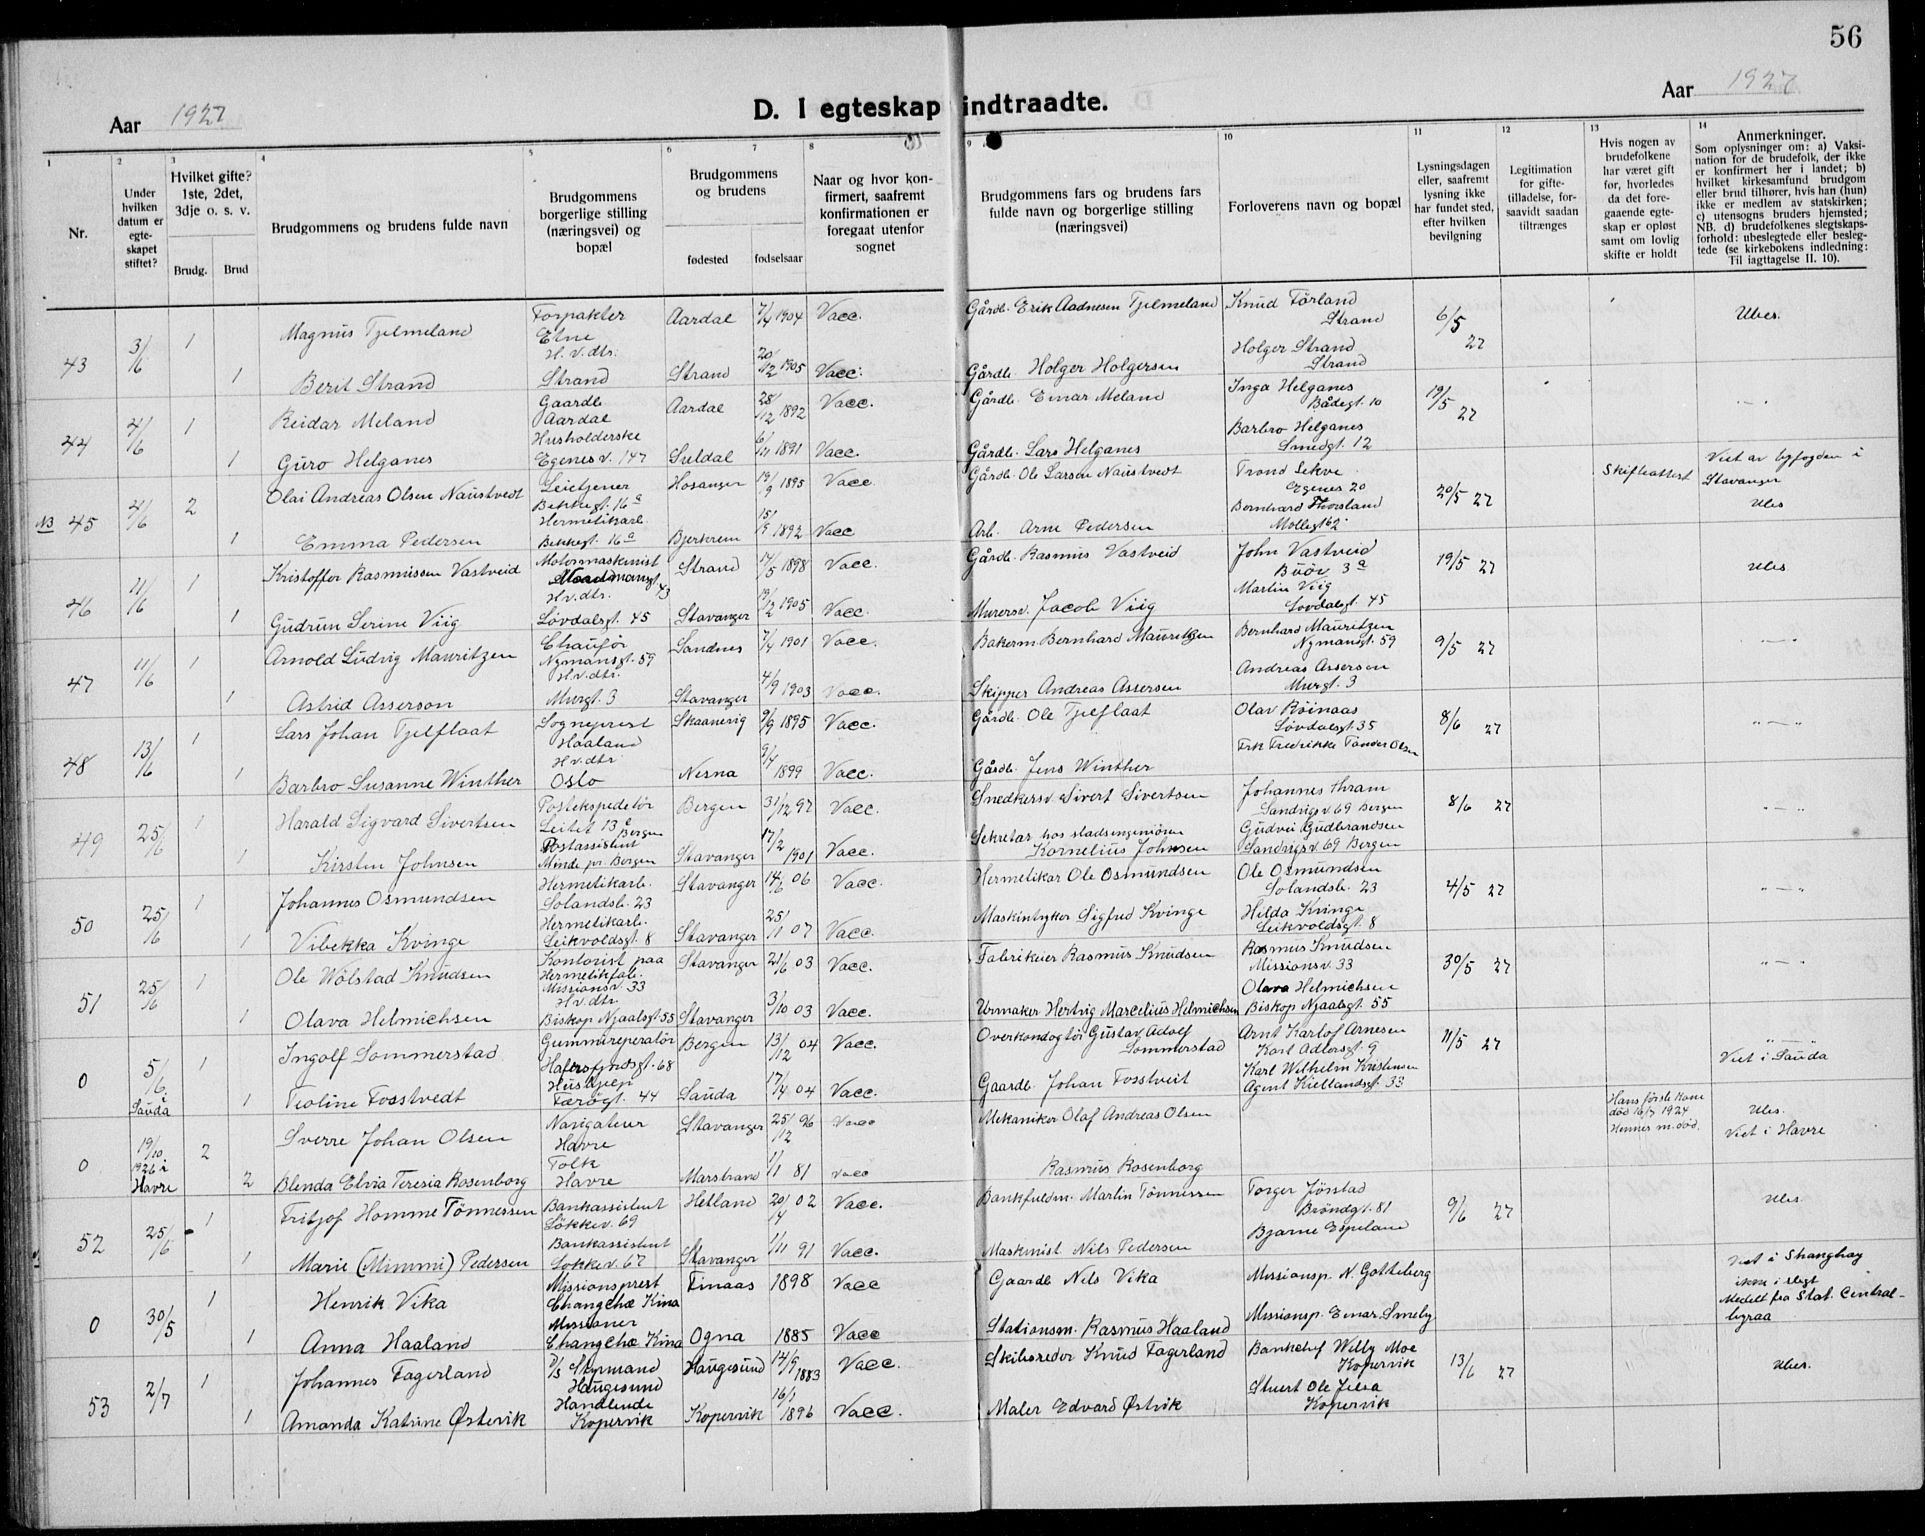 56
Aar 1927
D. I egteskap indtraadte.
Aar 1927
1 2 3 4 5 6 7 8 9 10 11 12 13 14
Nr.
Under hvilken datum er egteskapet stiftet?
Hvilket gifte? 1ste, 2det, 3dje o. s. v.
Brudg. Brud
Brudgommens og brudens fulde navn
Brudgommens borgerlige stilling (næringsvei) og bopæl
Brudgommens og brudens
fødested fødselsaar
Naar og hvor konfirmert, saafremt konfirmationen er foregaat utenfor sognet
Brudgommens fars og brudens fars fulde navn og borgerlige stilling (næringsvei)
Forloverens navn og bopæl
Lysningsdagen eller, saafremt lysning ikke har fundet sted, efter hvilken bevilgning
Legitimation for giftetilladelse, forsaavidt saadan tiltrænges
Hvis nogen av brudefolkene har været gift før, hvorledes da det foregaaende egteskap er opløst samt om lovlig skifte er holdt
Anmerkninger.
Som oplysninger om: a) Vaksination for de brudefolk, der ikke er konfirmert her i landet; b) hvilket kirkesamfund brudgom eller brud tilhører, hvis han (hun) ikke er medlem av statskirken; c) utensogns bruders hjemsted; NB. d) brudefolkenes slegtskapsforhold: ubeslegtede eller beslegtede (se kirkebokens indledning: Til iagttagelse II. 10).
43 3/6 1 Magnus Tjelmeland Forpakter Etne Aardal 7/4 1904 Vacc. Gårdb. Erik Aadnesen Tjelmeland Knud Førland Strand 6/5 27 Ubes.
1 Berit Strand H.v.dtr. Strand Strand 20/12 1905 Vacc. Gårdb. Holger Holgersen Holger Strand Strand
44 4/6 1 Reidar Meland Gaardb. Aardal Aardal 28/12 1892 Vacc. Gårdb. Einar Meland Inga Helganes Bådegt. 10 19/5 27 - " -
1 Guro Helganes Husholderske Egenesv. 147 Suldal 6/11 1891 Vacc. Gårdb. Lars Helganes Barbro Helganes Smedgt. 12
NB 45 4/6 2 Olai Andreas Olsen Naustvedt Leietjener Bekkegt. 16a Hosanger 19/9 1895 Vacc. Gårdb. Ole Larsen Naustvedt Trond Sekve Egenes 20 20/5 27 Skifteattest Viet av byfogden i Stavanger Ubes
1 Emma Pedersen Hermetikarb. Bekkegt. 16a Bjerkrem 15/9 1892 Vacc Arb. Arne Pedersen Bernhard Thorsland Møllegt 62
46 11/6 1 Kristoffer Rasmussen Vastveid Motormaskinist 43 Strand 14/5 1898 Vacc. Gårdb. Rasmus Vastveid John Vastveid Buøy 3a 19/5 27 Ubes
1 Gudrun Serine Viig H.v.dtr. Løvdalsgt. 45 Stavanger 19/12 1905 Vacc. Murersv. Jacob Viig Martin Viig Løvdalsgt. 45
47 11/6 1 Arnold Ludvig Mauritzen Chaufør Nymansgt. 59 Sandnes 7/4 1901 Vacc. Bakerm. Bernhard Mauritzen Bernhard Mauritzen Nymansgt. 59 9/5 27 - " -
1 Astrid Asserson H.v.dtr. Murgt. 3 Stavanger 4/9 1903 Vacc. Skipper Andreas Assersen Andreas Asserson Murgt. 3
48 13/6 1 Lars Johan Tjelflaat Sogneprest Haaland Skaanevig 9/9 1895 Vacc. Gårdb. Ole Tjelflaat Olav Røinaas Løvdalsgt. 35 8/6 27 - " -
1 Barbro Susanne Winther H.v.dtr Oslo Nesna 9/4 1899 Vacc. Gårdb. Jens Winther Frk Fredrikke Tønder Olsen
49 25/6 1 Harald Sigvard Sivertsen Postekspeditør Leitet 13a Bergen Bergen 31/12 97 Vacc. Snedkersv. Sivert Sivertsen Johannes Thram Sandvigsv. 69 Bergen 8/6 27 - " -
1 Kirsten Johnsen Postassistent Minde pr. Bergen Stavanger 17/2 1901 Vacc. Sekretær hos stadsingeniøren Kornelius Johnsen Gudvei Gudbrandsen Sandvigsv. 69 Bergen
50 25/6 1 Johannes Osmundsen Hermetikarb. Solandsb. 23 Stavanger 14/6 06 Vacc. Hermetikar Ole Osmundsen Ole Osmundsen Solandsb. 23 4/5 27 - " -
1 Vibekka Kvinge Hermetikarb. Leikvoldsgt. 8 Stavanger 25/11 07 Vacc. Maskintryker Sigfred Kvinge Hilda Kvinge Leikvoldsgt. 8
51 25/6 1 Ole Wølstad Knudsen Kontorist paa Hermetikfab. Missionsv. 33 Stavanger 21/6 03 Vacc. Fabrikeier Rasmus Knudsen Rasmus Knudsen Missionsv. 33 30/5 27 - " -
1 Olava Helmichsen H.v.dtr. Biskop Njaalsgt. 55 Stavanger 3/10 03 Vacc. Urmaker Hertvig Marcelius Helmichsen Olava Helmichsen Biskop Njaalsgt. 55
0 5/6 i Sauda 1 Ingolf Sommerstad Gummireperatør Hafersfjordsgt. 68 Bergen 13/12 04 Vacc. Overkondøgtør Gustav Adolf Sommerstad Arnt Karlof Arnesen Karl Adlersgt. 9 11/5 27 - " - Viet i Sauda
1 Teoline Fosstvedt Hushjelp Færøgt. 44 Sauda 17/4 04 Vacc. Gaardb. Johan Fosstveit Karl Wilhelm Kristensen Agent Kiellandsgt. 33
0 19/10 1926 i Havre 2 Sverre Johan Olsen Navigatør Havre Stavanger 25/12 96 Vacc Mekaniker Olaf Andreas Olsen Hans første kone død 16/7 1924 Hennes m. død. Ubes. Viet i Havre
2 Blenda Elvia Teresia Rosenborg Tolk Havre Marstrand 1/11 81 Vacc Rasmus Rosenborg
52 25/6 1 Fritjof Homme Tønnessen Bankassistent Løkkev. 69 Hetland 20/4 02 Vacc. Bankfuldm. Martin Tønnessen Torger Jøsstad Brøndgt. 81 9/6 27 Ubes.
1 Marie (Mimmi) Pedersen Bankassistent Løkkev. 67 Stavanger 1/11 91 Vacc. Maskinist Nils Pedersen Bjarne Espeland
0 30/5 1 Henrik Vika Missionsprest Changchæ Kina Finaas 1898 Vacc Gaardb Nils Vika Missionsp. N. Gotteberg Viet i Shanghay ikke i slegt Medelt fra Stat. Centralbyraa
1 Anna Haaland Missionær Changchæ Kina Ogna 1885 Vacc Stationsm. Rasmus Haaland Missionsp. Einar Smeby
53 2/7 1 Johannes Fagerland D/S Styrmand Haugesund Haugesund 14/9 1883 Vacc. Skibsreder Knud Fagerland Bankchef Willy Moe Kopervik 13/6 27 Ubes.
1 Amanda Katrine Østevik Handlende Kopervik Kopervik 16/1 1896 Vacc. Maler Edvard Østvik Stuert Ole Jelsa Kopervik